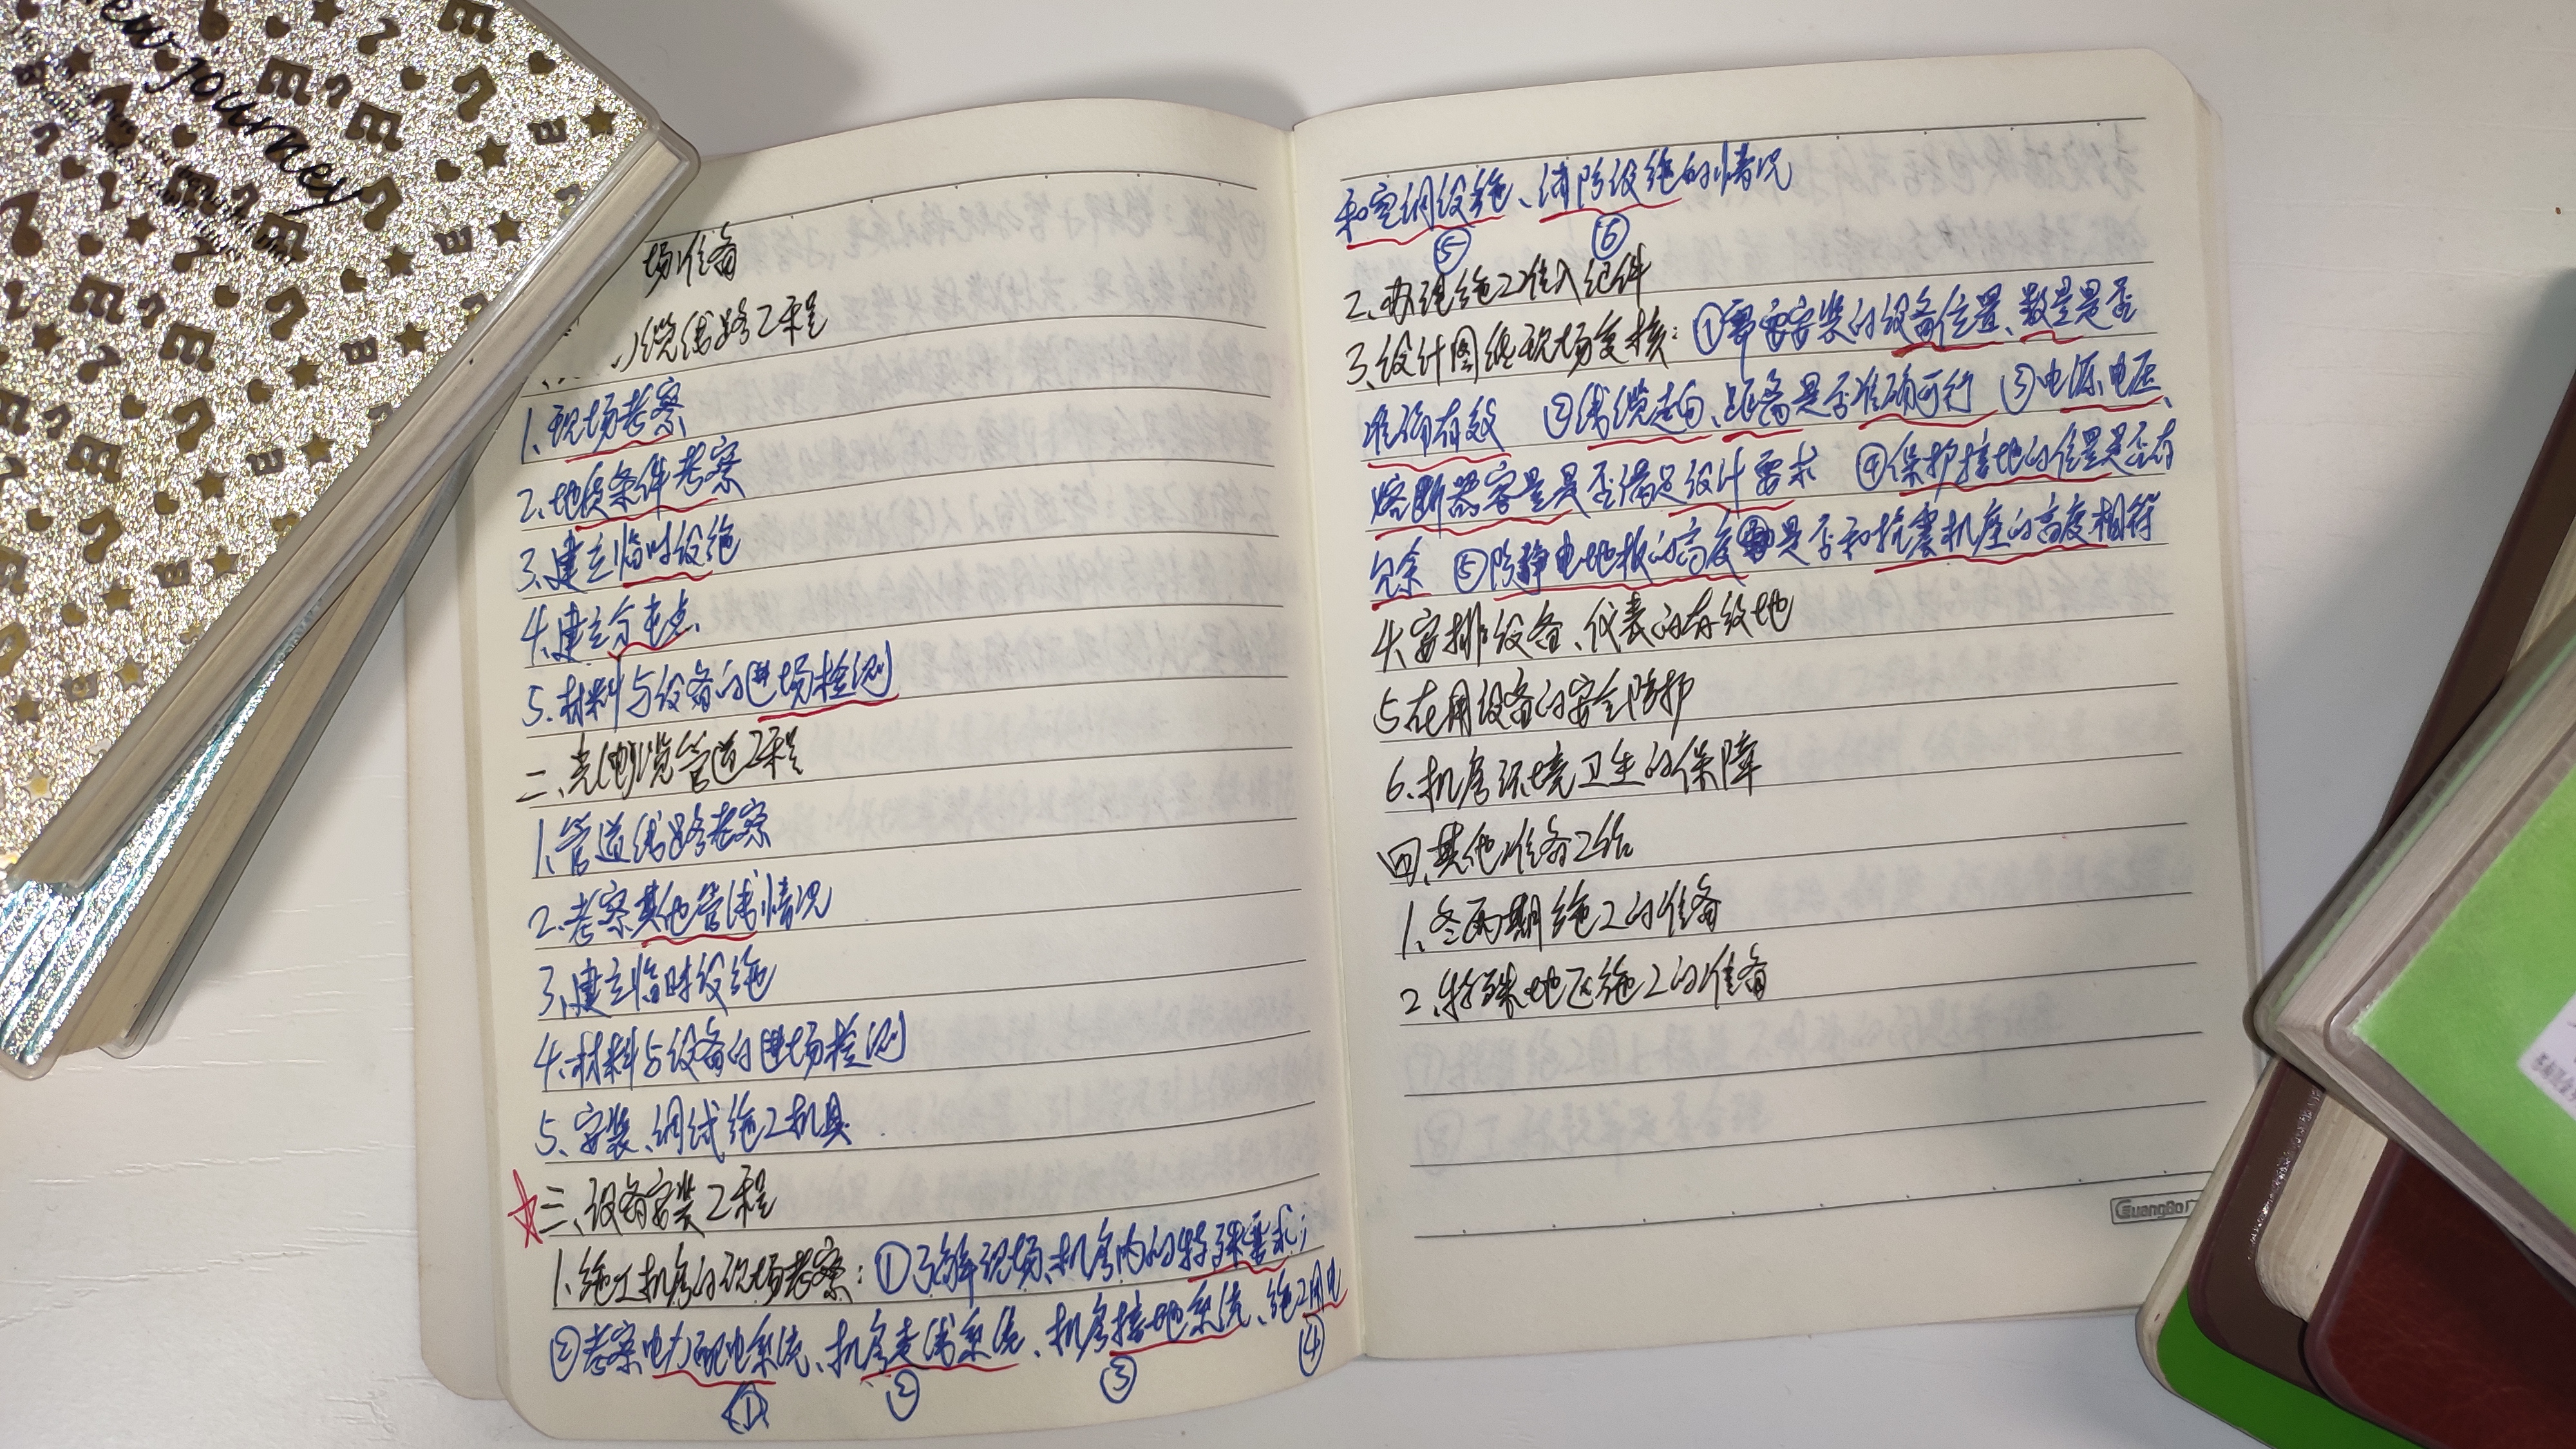 new journey
场准备
缆线路工程
1、现场考察
2、地质条件考察
3、建立临时设施
4、建立分屯点
5、材料与设备的进场检测
二、光(电)缆管道工程
1、管道线路考察
2、考察其他管线情况
3、建立临时设施
4、材料与设备的进场检测
5、安装、调试施工机具
三、设备安装工程
1、施工机房的现场考察：①了解现场、机房内的特殊要求；
②考察电力配电系统、机房走线系统、机房接地系统、施工用电
① ② ③ ④
和空调设施、消防设施的情况
⑤ ⑥
2、办理施工准入证件
3、设计图纸现场复核：①需要安装的设备位置、数量是否
准确有效 ②线缆走向、距离是否准确可行 ③电源、电压、
熔断器容量是否满足设计要求 ④保护接地的位置是否有
冗余 ⑤防静电地板的高度是否和抗震机座的高度相符
4、安排设备、仪表的存放地
5、在用设备的安全防护
6、机房环境卫生的保障
四、其他准备工作
1、冬雨期施工的准备
2、特殊地区施工的准备
GuangBo